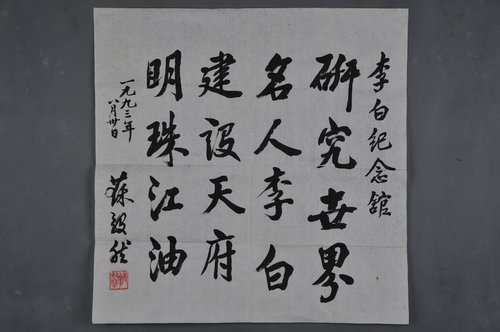 李白纪念馆
研究世界
名人李白
建设天府
明珠江油
一九九三年
八月廿日
蘇毅然